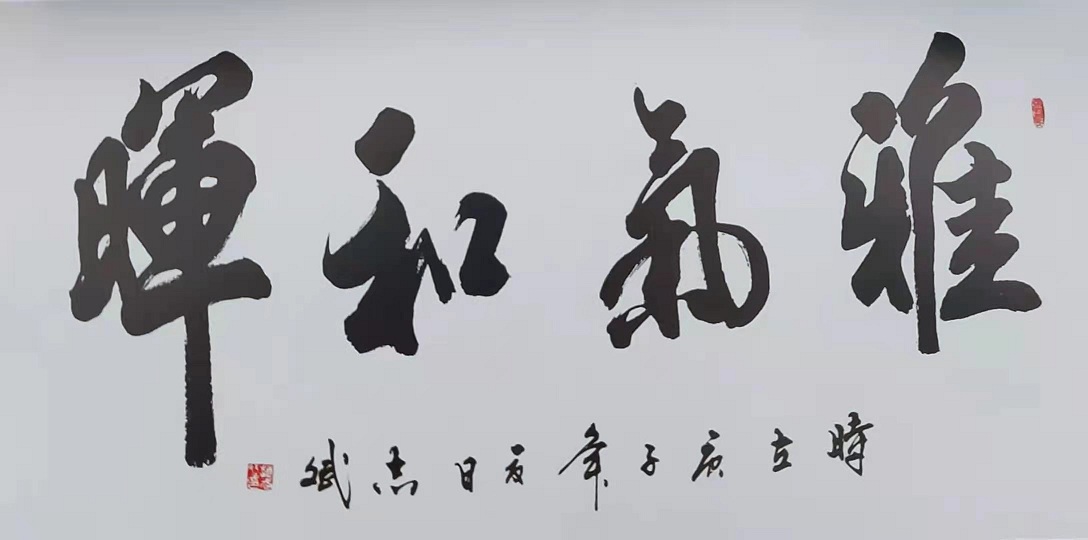 雅氣和暉
時在庚子年夏日志斌